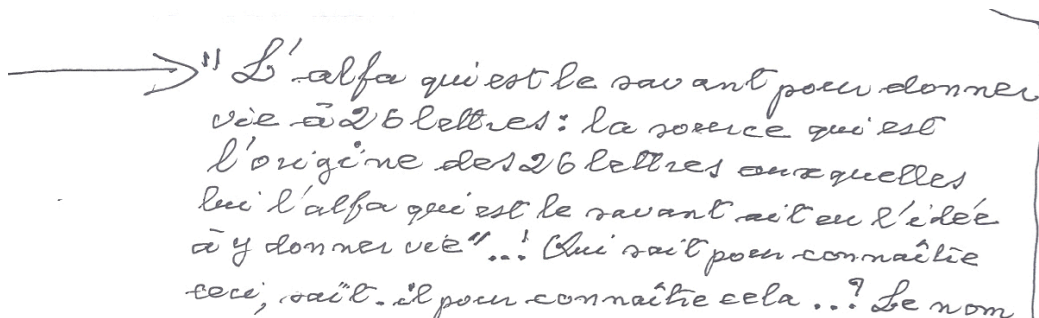 "L'alfa qui est le savant pour donner
vie à 26 lettres : la source qui est
l'origine des 26 lettres auxquelles
lui l'alfa qui est le savant ait eu l'idée
à y donner vie"..! Qui sait pour connaître
ceci, sait-il pour connaître cela ..? Le nom